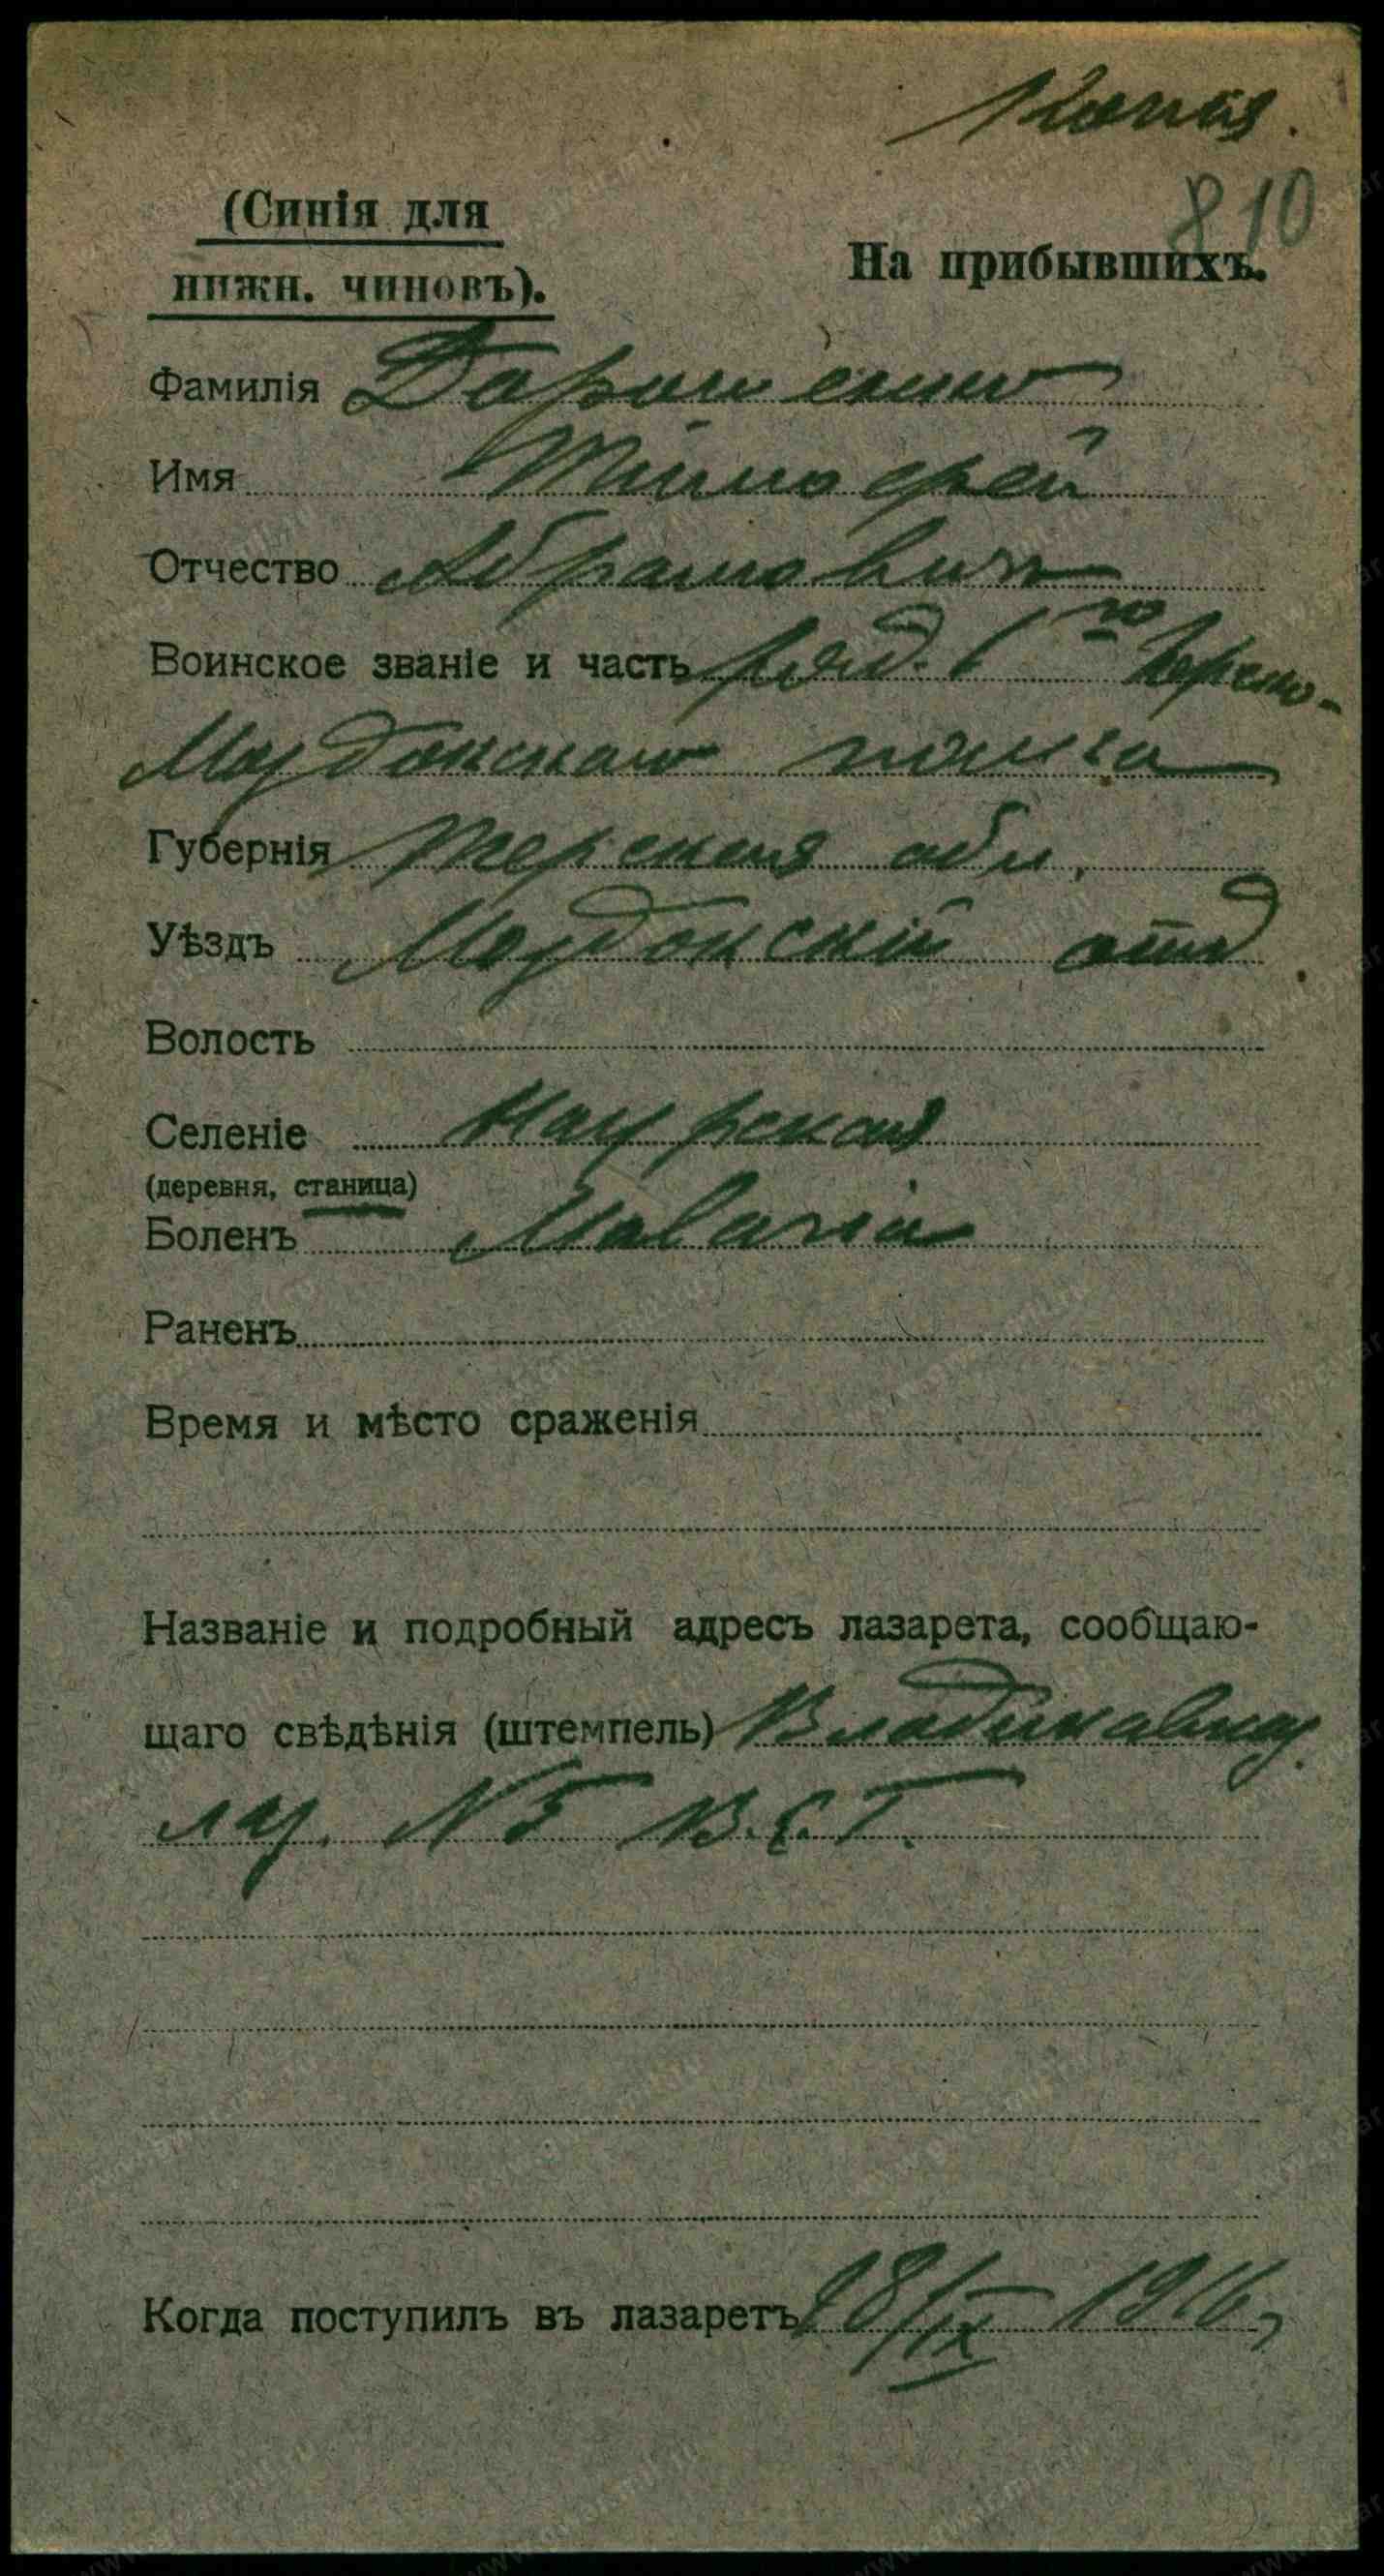 Копія.
810
(Синія для
нижн. чиновъ).
На прибывшихъ.
Фамилія Дарашенко
Имя Тимофей
Отчество Абрамович
Воинское званіе и часть ряд. 1го
Моздокскаго полка
Губернія Терская обл.
Уѣздъ Моздокскій отд
Волость
Селеніе Наурская
(деревня, станица)
Боленъ Malaria
Раненъ
Время и мѣсто сраженія
Названіе и подробный адресъ лазарета, сообщаю-
щаго свѣдѣнія (штемпель) Владикавказ.
лаз. N5 В.С.Г.
Когда поступилъ въ лазаретъ 18/IX 1916 г